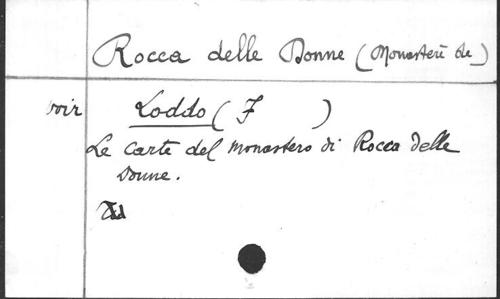 Rocca delle Donne (Monastère de)
voir Loddo (F )
Le Carte del monastero di Rocca delle
Donne.